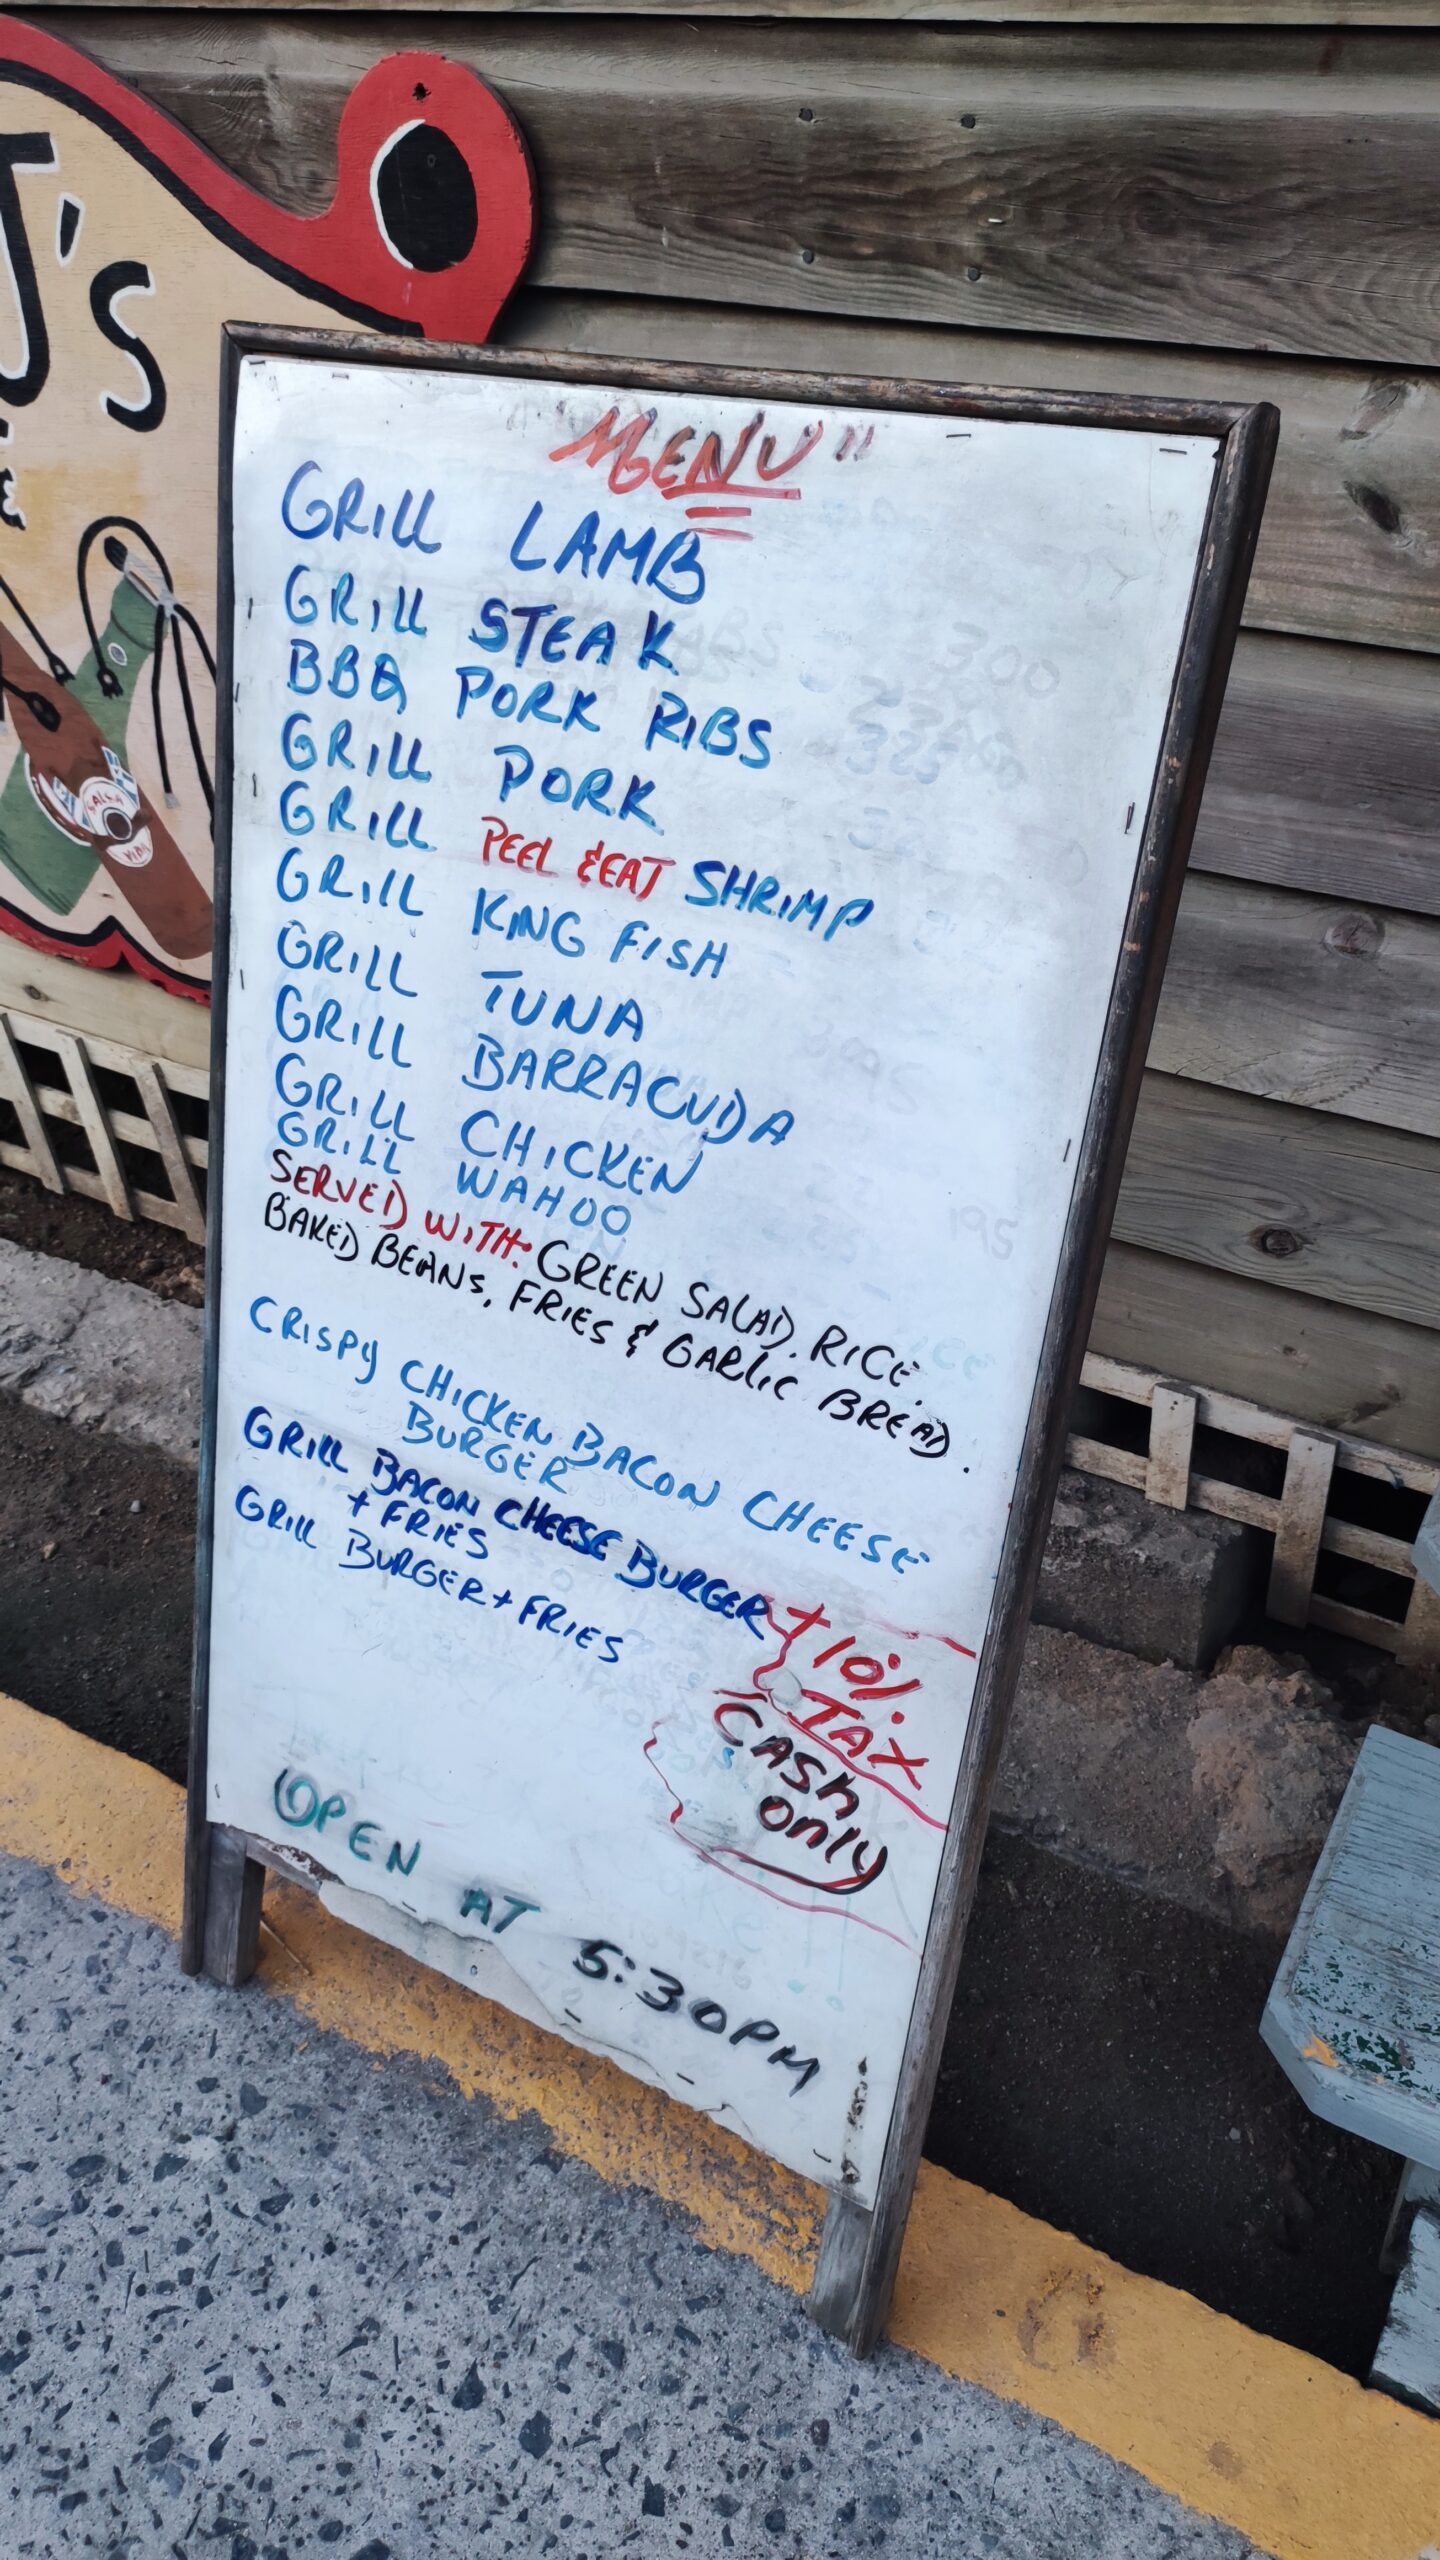 J's
&
SALSA
"MENU"
GRILL LAMB
GRILL STEAK
BBQ PORK RIBS
GRILL PORK
GRILL PEEL & EAT SHRIMP
GRILL KING FISH
GRILL TUNA
GRILL BARRACUDA
GRILL CHICKEN
GRILL WAHOO
SERVED WITH: GREEN SALAD, RICE,
BAKED BEANS, FRIES & GARLIC BREAD.
CRISPY CHICKEN BACON CHEESE
BURGER
GRILL BACON CHEESE BURGER
+ FRIES
GRILL BURGER + FRIES
+10%
TAX
CASH
ONLY
OPEN AT 5:30PM